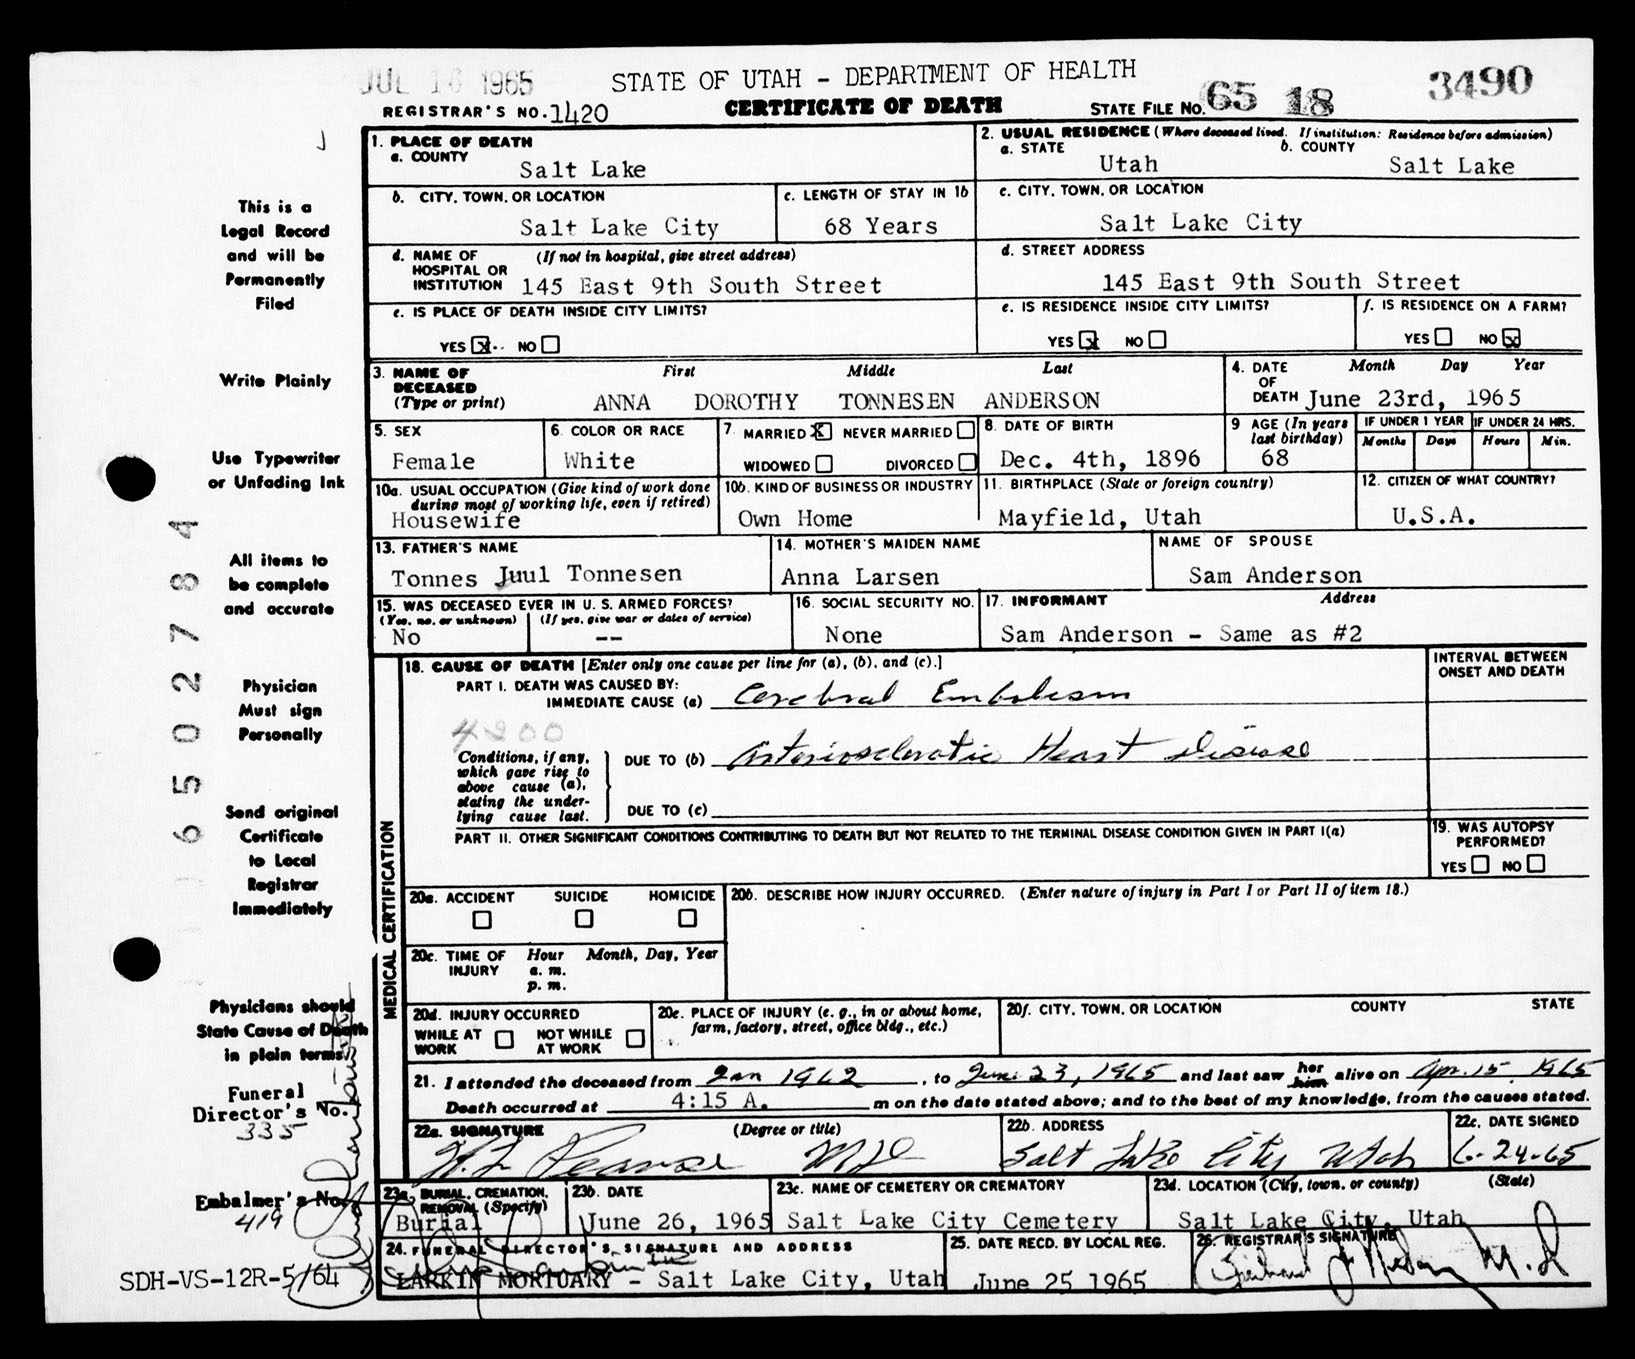 JUL 16 1965
STATE OF UTAH - DEPARTMENT OF HEALTH
3490
REGISTRAR'S NO. 1420 CERTIFICATE OF DEATH STATE FILE NO. 65 18
1. PLACE OF DEATH
a. COUNTY
Salt Lake
2. USUAL RESIDENCE (Where deceased lived. If institution: Residence before admission)
a. STATE b. COUNTY
Utah Salt Lake
b. CITY, TOWN, OR LOCATION
Salt Lake City
c. LENGTH OF STAY IN 1b
68 Years
c. CITY, TOWN, OR LOCATION
Salt Lake City
d. NAME OF (If not in hospital, give street address)
HOSPITAL OR
INSTITUTION 145 East 9th South Street
d. STREET ADDRESS
145 East 9th South Street
e. IS PLACE OF DEATH INSIDE CITY LIMITS?
YES X NO
e. IS RESIDENCE INSIDE CITY LIMITS?
YES X NO
f. IS RESIDENCE ON A FARM?
YES NO X
3. NAME OF First Middle Last
DECEASED
(Type or print) ANNA DOROTHY TONNESEN ANDERSON
4. DATE Month Day Year
OF
DEATH June 23rd, 1965
5. SEX
Female
6. COLOR OR RACE
White
7. MARRIED X NEVER MARRIED
WIDOWED DIVORCED
8. DATE OF BIRTH
Dec. 4th, 1896
9 AGE (In years
last birthday)
68
IF UNDER 1 YEAR IF UNDER 24 HRS.
Months Days Hours Min.
10a. USUAL OCCUPATION (Give kind of work done
during most of working life, even if retired)
Housewife
10b. KIND OF BUSINESS OR INDUSTRY
Own Home
11. BIRTHPLACE (State or foreign country)
Mayfield, Utah
12. CITIZEN OF WHAT COUNTRY?
U.S.A.
13. FATHER'S NAME
Tonnes Juul Tonnesen
14. MOTHER'S MAIDEN NAME
Anna Larsen
NAME OF SPOUSE
Sam Anderson
15. WAS DECEASED EVER IN U. S. ARMED FORCES?
(Yes, no, or unknown) (If yes, give war or dates of service)
No --
16. SOCIAL SECURITY NO.
None
17. INFORMANT Address
Sam Anderson - Same as #2
MEDICAL CERTIFICATION
18. CAUSE OF DEATH [Enter only one cause per line for (a), (b), and (c).]
INTERVAL BETWEEN
ONSET AND DEATH
PART I. DEATH WAS CAUSED BY:
IMMEDIATE CAUSE (a) Cerebral Embolism
4200
Conditions, if any,
which gave rise to
above cause (a),
stating the under-
lying cause last.
DUE TO (b) Arteriosclerotic Heart Disease
DUE TO (c)
PART II. OTHER SIGNIFICANT CONDITIONS CONTRIBUTING TO DEATH BUT NOT RELATED TO THE TERMINAL DISEASE CONDITION GIVEN IN PART I(a)
19. WAS AUTOPSY
PERFORMED?
YES NO
20a. ACCIDENT SUICIDE HOMICIDE
20b. DESCRIBE HOW INJURY OCCURRED. (Enter nature of injury in Part I or Part II of item 18.)
20c. TIME OF Hour Month, Day, Year
INJURY a. m.
p. m.
20d. INJURY OCCURRED
WHILE AT NOT WHILE
WORK AT WORK
20e. PLACE OF INJURY (e. g., in or about home,
farm, factory, street, office bldg., etc.)
20f. CITY, TOWN, OR LOCATION COUNTY STATE
21. I attended the deceased from Jan 1962, to June 23, 1965 and last saw her him alive on Apr. 15, 1965
Death occurred at 4:15 A. m on the date stated above; and to the best of my knowledge, from the causes stated.
22a. SIGNATURE (Degree or title)
MD
22b. ADDRESS
Salt Lake City Utah
22c. DATE SIGNED
6-24-65
23a. BURIAL, CREMATION,
REMOVAL (Specify)
Burial
23b. DATE
June 26, 1965
23c. NAME OF CEMETERY OR CREMATORY
Salt Lake City Cemetery
23d. LOCATION (City, town, or county) (State)
Salt Lake City, Utah
24. FUNERAL DIRECTOR'S SIGNATURE AND ADDRESS
LARKIN MORTUARY - Salt Lake City, Utah
25. DATE RECD. BY LOCAL REG.
June 25 1965
26. REGISTRAR'S SIGNATURE
M.D
This is a
Legal Record
and will be
Permanently
Filed
Write Plainly
Use Typewriter
or Unfading Ink
All items to
be complete
and accurate
Physician
Must sign
Personally
Send original
Certificate
to Local
Registrar
Immediately
Physicians should
State Cause of Death
in plain terms.
Funeral
Director's No.
335
Embalmer's No.
419
SDH-VS-12R-5/64
65027 84